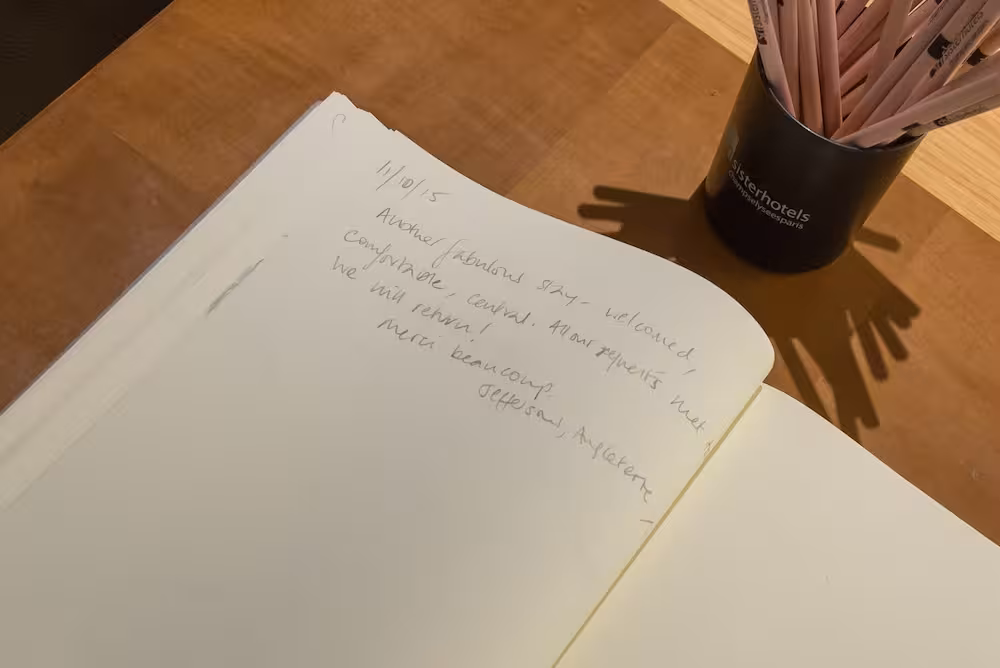 11/10/15
Another fabulous stay - welcomed,
comfortable, central. All our requests met
We will return!
merci beaucoup.
Jeffersons, Angleterre
sisterhotels
champselyseesparis